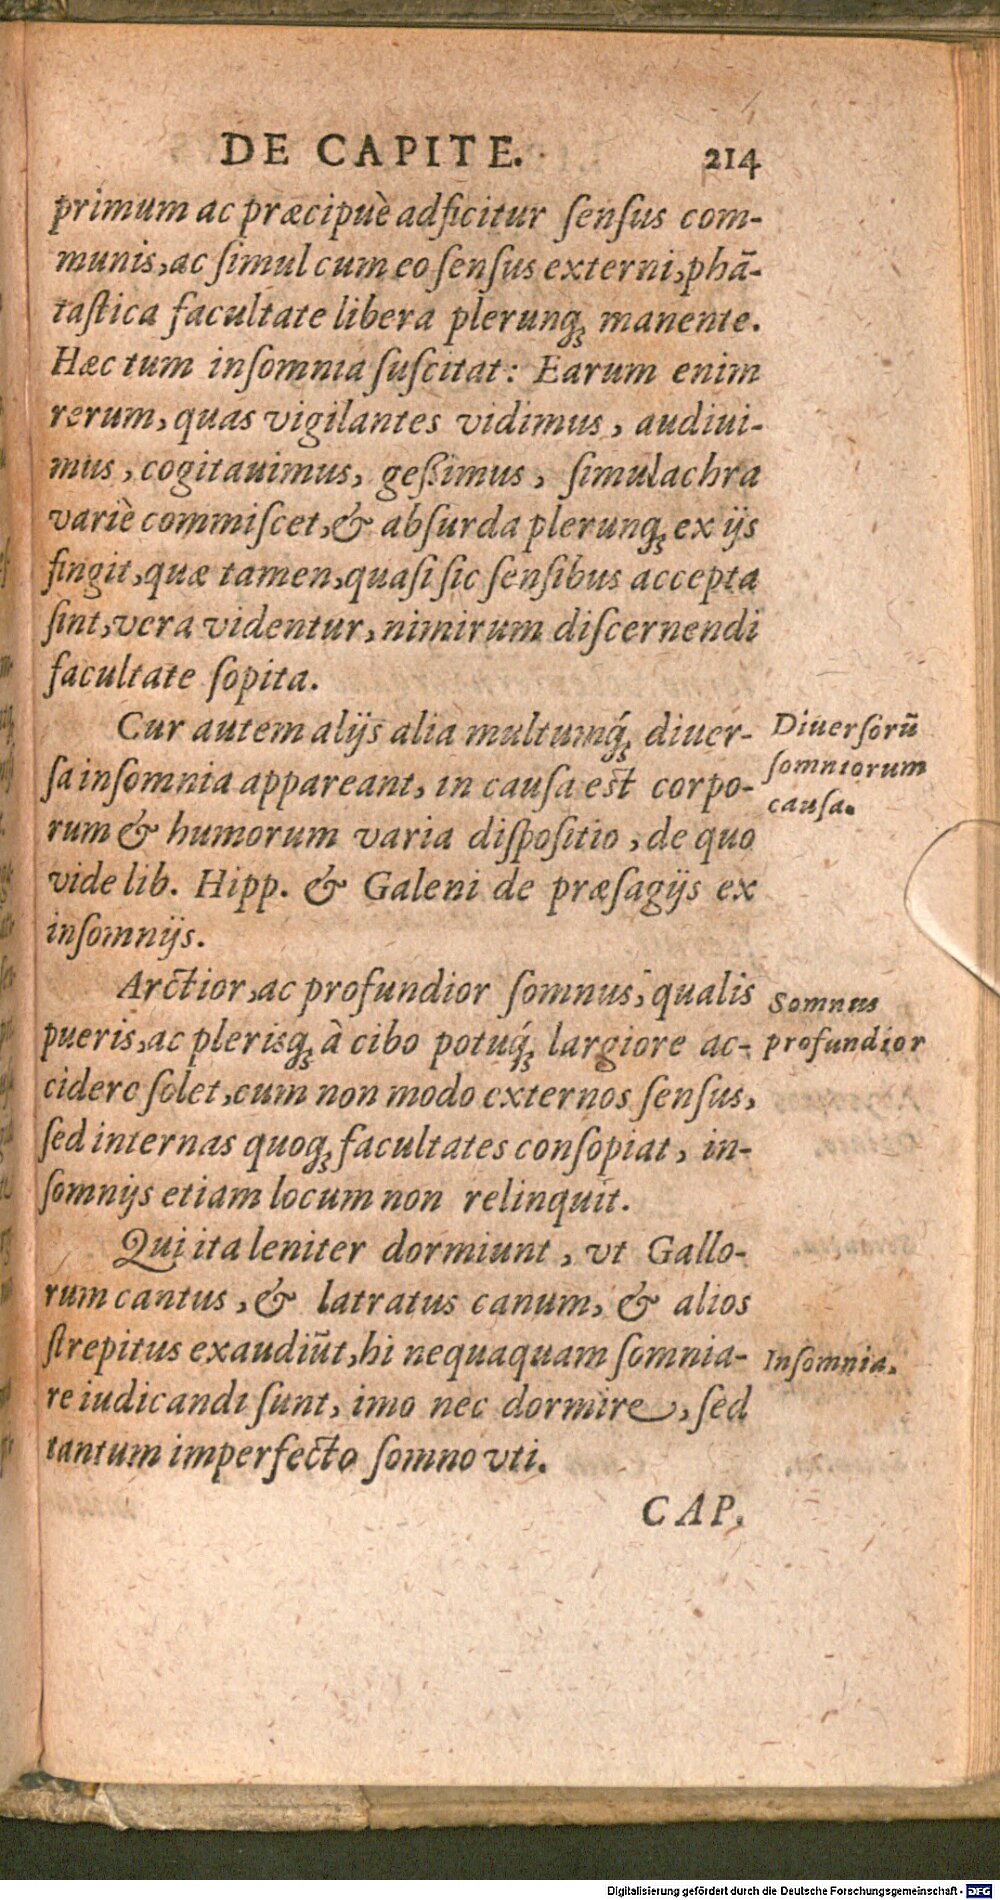 DE CAPITE. 214
primum ac præcipuè adficitur ſenſus com-
munis, ac ſimul cum eo ſenſus externi, phā-
taſtica facultate libera plerunq; manente.
Hæc tum inſomnia ſuſcitat: Earum enim
rerum, quas vigilantes vidimus, audiui-
mus, cogitauimus, geßimus, ſimulachra
variè commiſcet, & abſurda plerunq; ex ijs
fingit, quæ tamen, quaſi ſic ſenſibus accepta
ſint, vera videntur, nimirum diſcernendi
facultate ſopita.
Cur autem alijs alia multumq́; diuer-
ſa inſomnia appareant, in cauſa est corpo-
rum & humorum varia diſpoſitio, de quo
vide lib. Hipp. & Galeni de præſagijs ex
inſomnijs.
Diuerſorū
ſomniorum
cauſa.
Arctior, ac profundior ſomnus, qualis
pueris, ac plerisq; à cibo potuq́; largiore ac-
cidere ſolet, cum non modo externos ſenſus,
ſed internas quoq; facultates conſopiat, in-
ſomnijs etiam locum non relinquit.
Somnus
profundior
Qui ita leniter dormiunt, vt Gallo-
rum cantus, & latratus canum, & alios
ſtrepitus exaudiūt, hi nequaquam ſomnia-
re iudicandi ſunt, imo nec dormire, ſed
tantum imperfecto ſomno vti.
Inſomnia.
CAP.
Digitalisierung gefördert durch die Deutsche Forschungsgemeinschaft - DFG